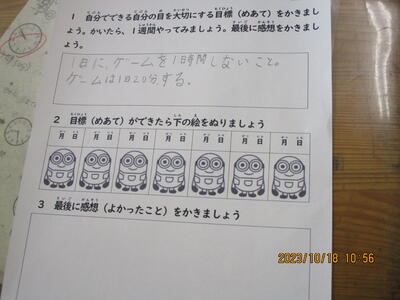 1 自分でできる自分の目を大切にする目標(めあて)をかきまし
ょう。かいたら、1週間やってみましょう。最後に感想をかきまし
ょう。
1日に、ゲームを1時間しないこと。
ゲームは1日20分する。
2 目標(めあて)ができたら下の絵をぬりましょう
月 日 月 日 月 日 月 日 月 日 月 日 月 日
3 最後に感想(よかったこと)をかきましょう
2023/10/18 10:56